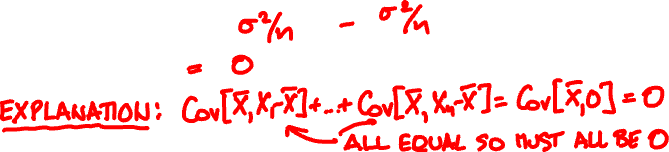 σ²/n - σ²/n
= 0
EXPLANATION: Cov[X̄, X₁-X̄]+...+Cov[X̄, Xₙ-X̄]=Cov[X̄,0]=0
ALL EQUAL SO MUST ALL BE 0